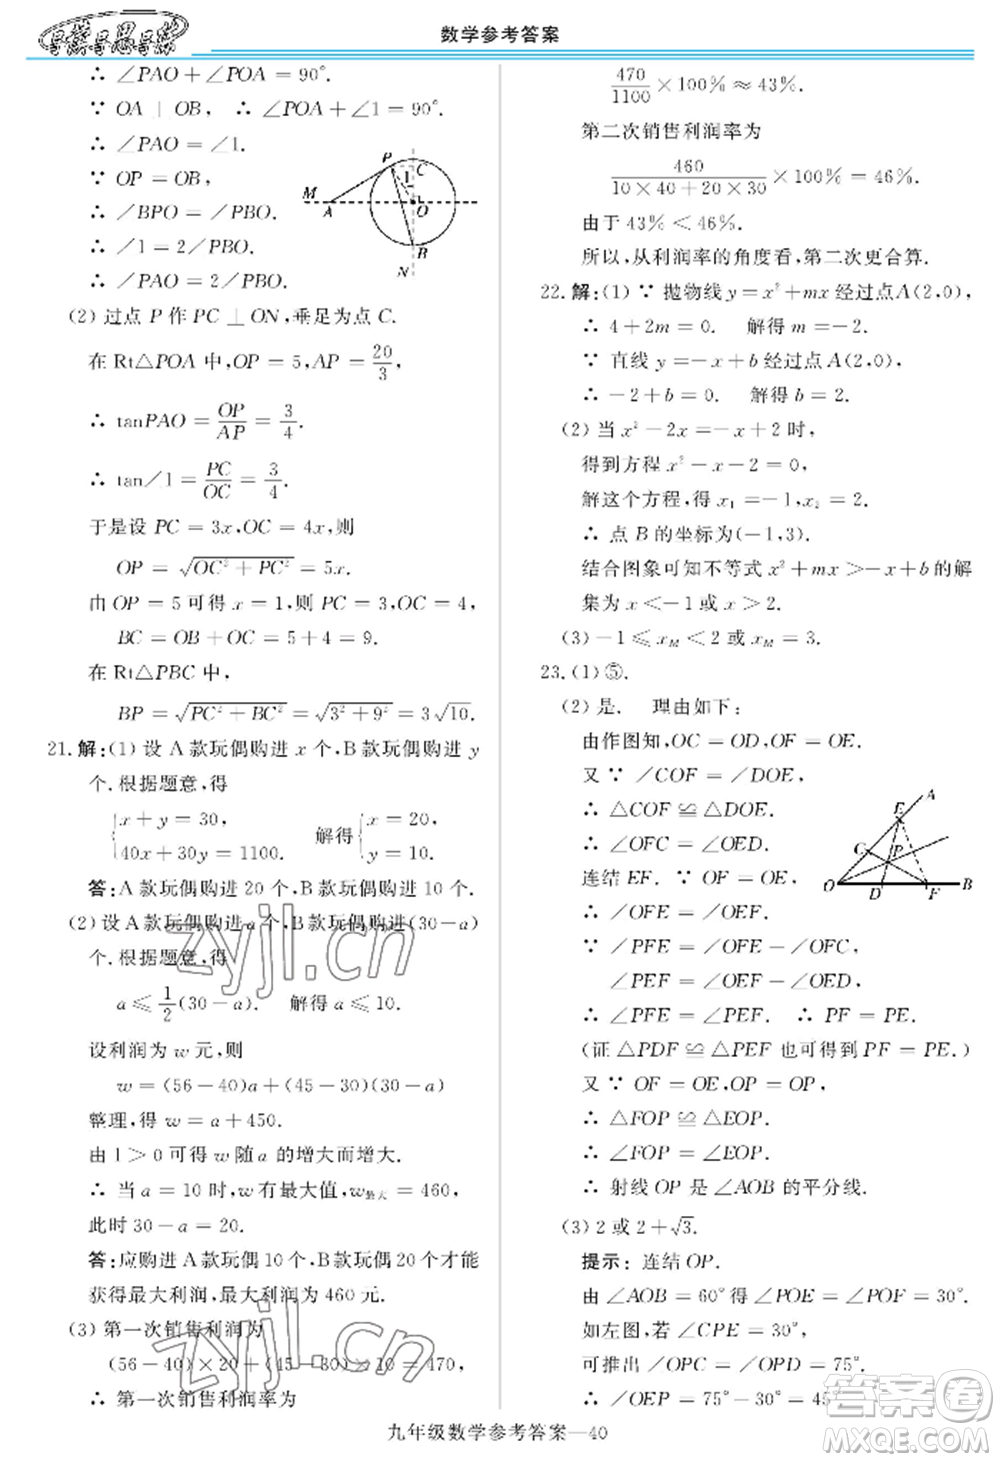 导学导思导练
数学参考答案
∴ ∠PAO+∠POA=90°.
∵ OA⊥OB, ∴ ∠POA+∠1=90°.
∴ ∠PAO=∠1.
∵ OP=OB,
∴ ∠BPO=∠PBO.
∴ ∠1=2∠PBO.
∴ ∠PAO=2∠PBO.
P
C
1
M
A
O
B
N
(2) 过点 P 作 PC⊥ON,垂足为点 C.
在 Rt△POA 中,OP=5,AP=20/3,
∴ tanPAO=OP/AP=3/4.
∴ tan∠1=PC/OC=3/4.
于是设 PC=3x,OC=4x,则
OP=√(OC²+PC²)=5x.
由 OP=5 可得 x=1,则 PC=3,OC=4,
BC=OB+OC=5+4=9.
在 Rt△PBC 中,
BP=√(PC²+BC²)=√(3²+9²)=3√10.
21. 解:(1) 设 A 款玩偶购进 x 个,B 款玩偶购进 y
个.根据题意,得
{x+y=30, 40x+30y=1100. 解得 {x=20, y=10.
答:A 款玩偶购进 20 个,B 款玩偶购进 10 个.
(2) 设 A 款玩偶购进 a 个,B 款玩偶购进(30-a)
个.根据题意,得
a≤1/2(30-a). 解得 a≤10.
设利润为 w 元,则
w=(56-40)a+(45-30)(30-a)
整理,得 w=a+450.
由 1>0 可得 w 随 a 的增大而增大.
∴ 当 a=10 时,w 有最大值,w最大=460,
此时 30-a=20.
答:应购进 A 款玩偶 10 个,B 款玩偶 20 个才能
获得最大利润,最大利润为 460 元.
(3) 第一次销售利润为
(56-40)×20+(45-30)×10=470,
∴ 第一次销售利润率为
470/1100×100%≈43%.
第二次销售利润率为
460/(10×40+20×30)×100%=46%.
由于 43%<46%.
所以,从利润率的角度看,第二次更合算.
22. 解:(1) ∵ 抛物线 y=x²+mx 经过点A(2,0),
∴ 4+2m=0. 解得 m=-2.
∵ 直线 y=-x+b 经过点A(2,0),
∴ -2+b=0. 解得 b=2.
(2) 当 x²-2x=-x+2 时,
得到方程 x²-x-2=0,
解这个方程,得 x₁=-1,x₂=2.
∴ 点 B 的坐标为(-1,3).
结合图象可知不等式 x²+mx>-x+b 的解
集为 x<-1 或 x>2.
(3) -1≤x_M<2 或 x_M=3.
23. (1) ⑤.
(2) 是. 理由如下:
由作图知,OC=OD,OF=OE.
又 ∵ ∠COF=∠DOE,
∴ △COF≌△DOE.
∴ ∠OFC=∠OED.
连结 EF. ∵ OF=OE,
∴ ∠OFE=∠OEF.
A
E
C
P
O
D
F
B
∵ ∠PFE=∠OFE-∠OFC,
∠PEF=∠OEF-∠OED,
∴ ∠PFE=∠PEF. ∴ PF=PE.
(证 △PDF≌△PEF 也可得到 PF=PE.)
又 ∵ OF=OE,OP=OP,
∴ △FOP≌△EOP.
∴ ∠FOP=∠EOP.
∴ 射线 OP 是∠AOB 的平分线.
(3) 2 或 2+√3.
提示: 连结 OP.
由 ∠AOB=60° 得 ∠POE=∠POF=30°.
如左图,若 ∠CPE=30°,
可推出 ∠OPC=∠OPD=75°.
∴ ∠OEP=75°-30°=45
九年级数学参考答案—40
zyjl.cn
zyjl.cn
答案圈